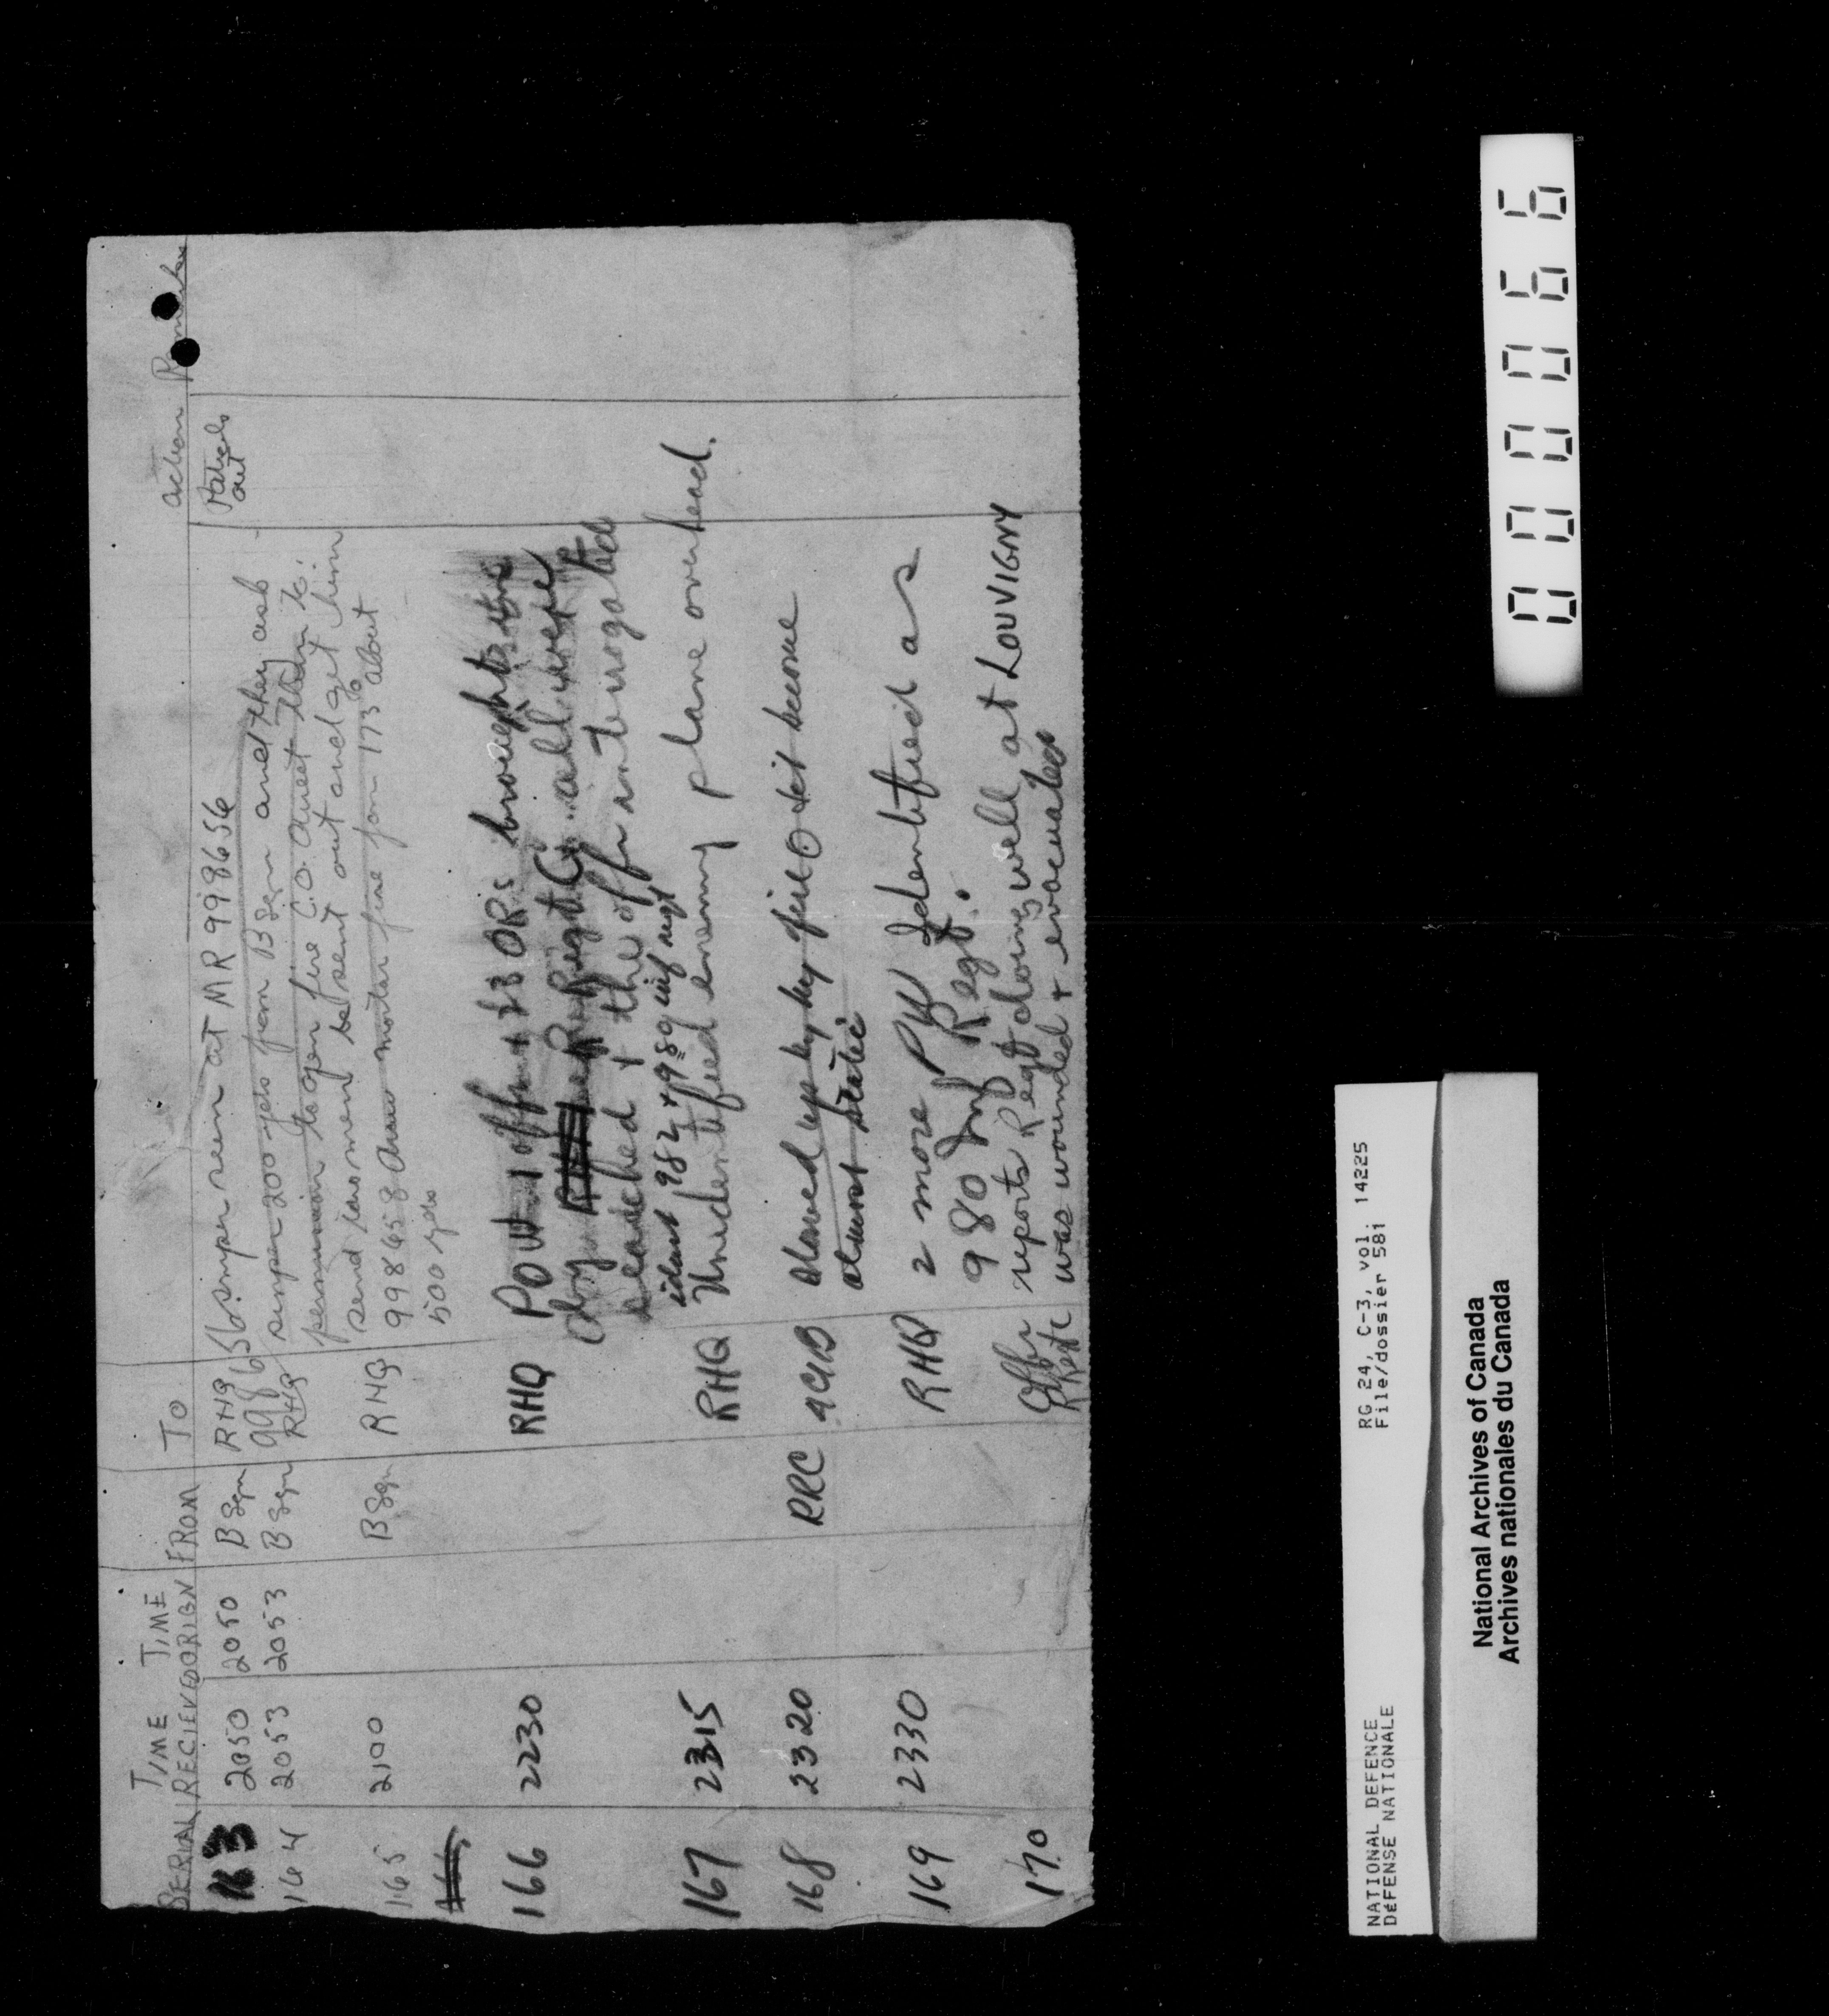 SERIAL TIME RECIEVED TIME ORIGN FROM TO action Remarks
163 2050 2050 B Sqn RHQ sniper seen at MR 998656 Patrols out
164 2053 2053 B Sqn RHQ 998656 sniper 200 yds from B Sqn and they ask
permission to open fire C.O. direct them to:
send two men be sent out and get him
165 2100 B Sqn RHQ 998658 draw mortar fire from 173° about
500 yds
166 2230 RHQ POW 1 offr + 23 ORs brought in
by Regt all were
searched + the offr interrogated
ident 982 + 989 inf regt
167 2315 RHQ Unidentified enemy plane overhead.
168 2320 RRC 4CIB slowed up by by fire but become
almost static
169 2330 RHQ 2 more PW Identified as
980 Inf Regt.
170 Offr reports Regt doing well at LOUVIGNY
was wounded + evacuated
NATIONAL DEFENCE
DÉFENSE NATIONALE
RG 24, C-3, vol. 14225
File/dossier 581
National Archives of Canada
Archives nationales du Canada
000066